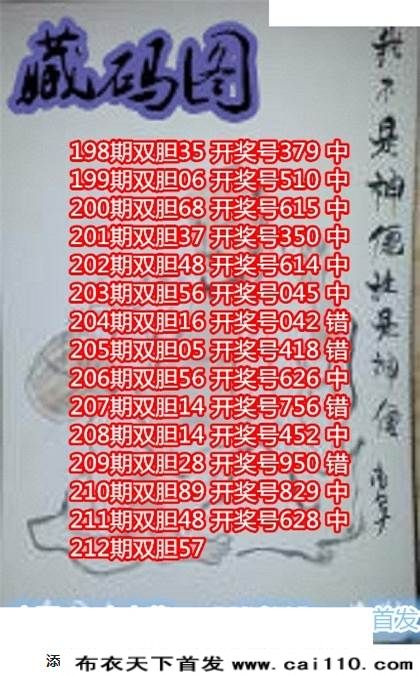 藏码图
我不是神但找是神但
198期双胆35 开奖号379 中
199期双胆06 开奖号510 中
200期双胆68 开奖号615 中
201期双胆37 开奖号350 中
202期双胆48 开奖号614 中
203期双胆56 开奖号045 中
204期双胆16 开奖号042 错
205期双胆05 开奖号418 错
206期双胆56 开奖号626 中
207期双胆14 开奖号756 错
208期双胆14 开奖号452 中
209期双胆28 开奖号950 错
210期双胆89 开奖号829 中
211期双胆48 开奖号628 中
212期双胆57
首发
添 布衣天下首发 www.cai110.com